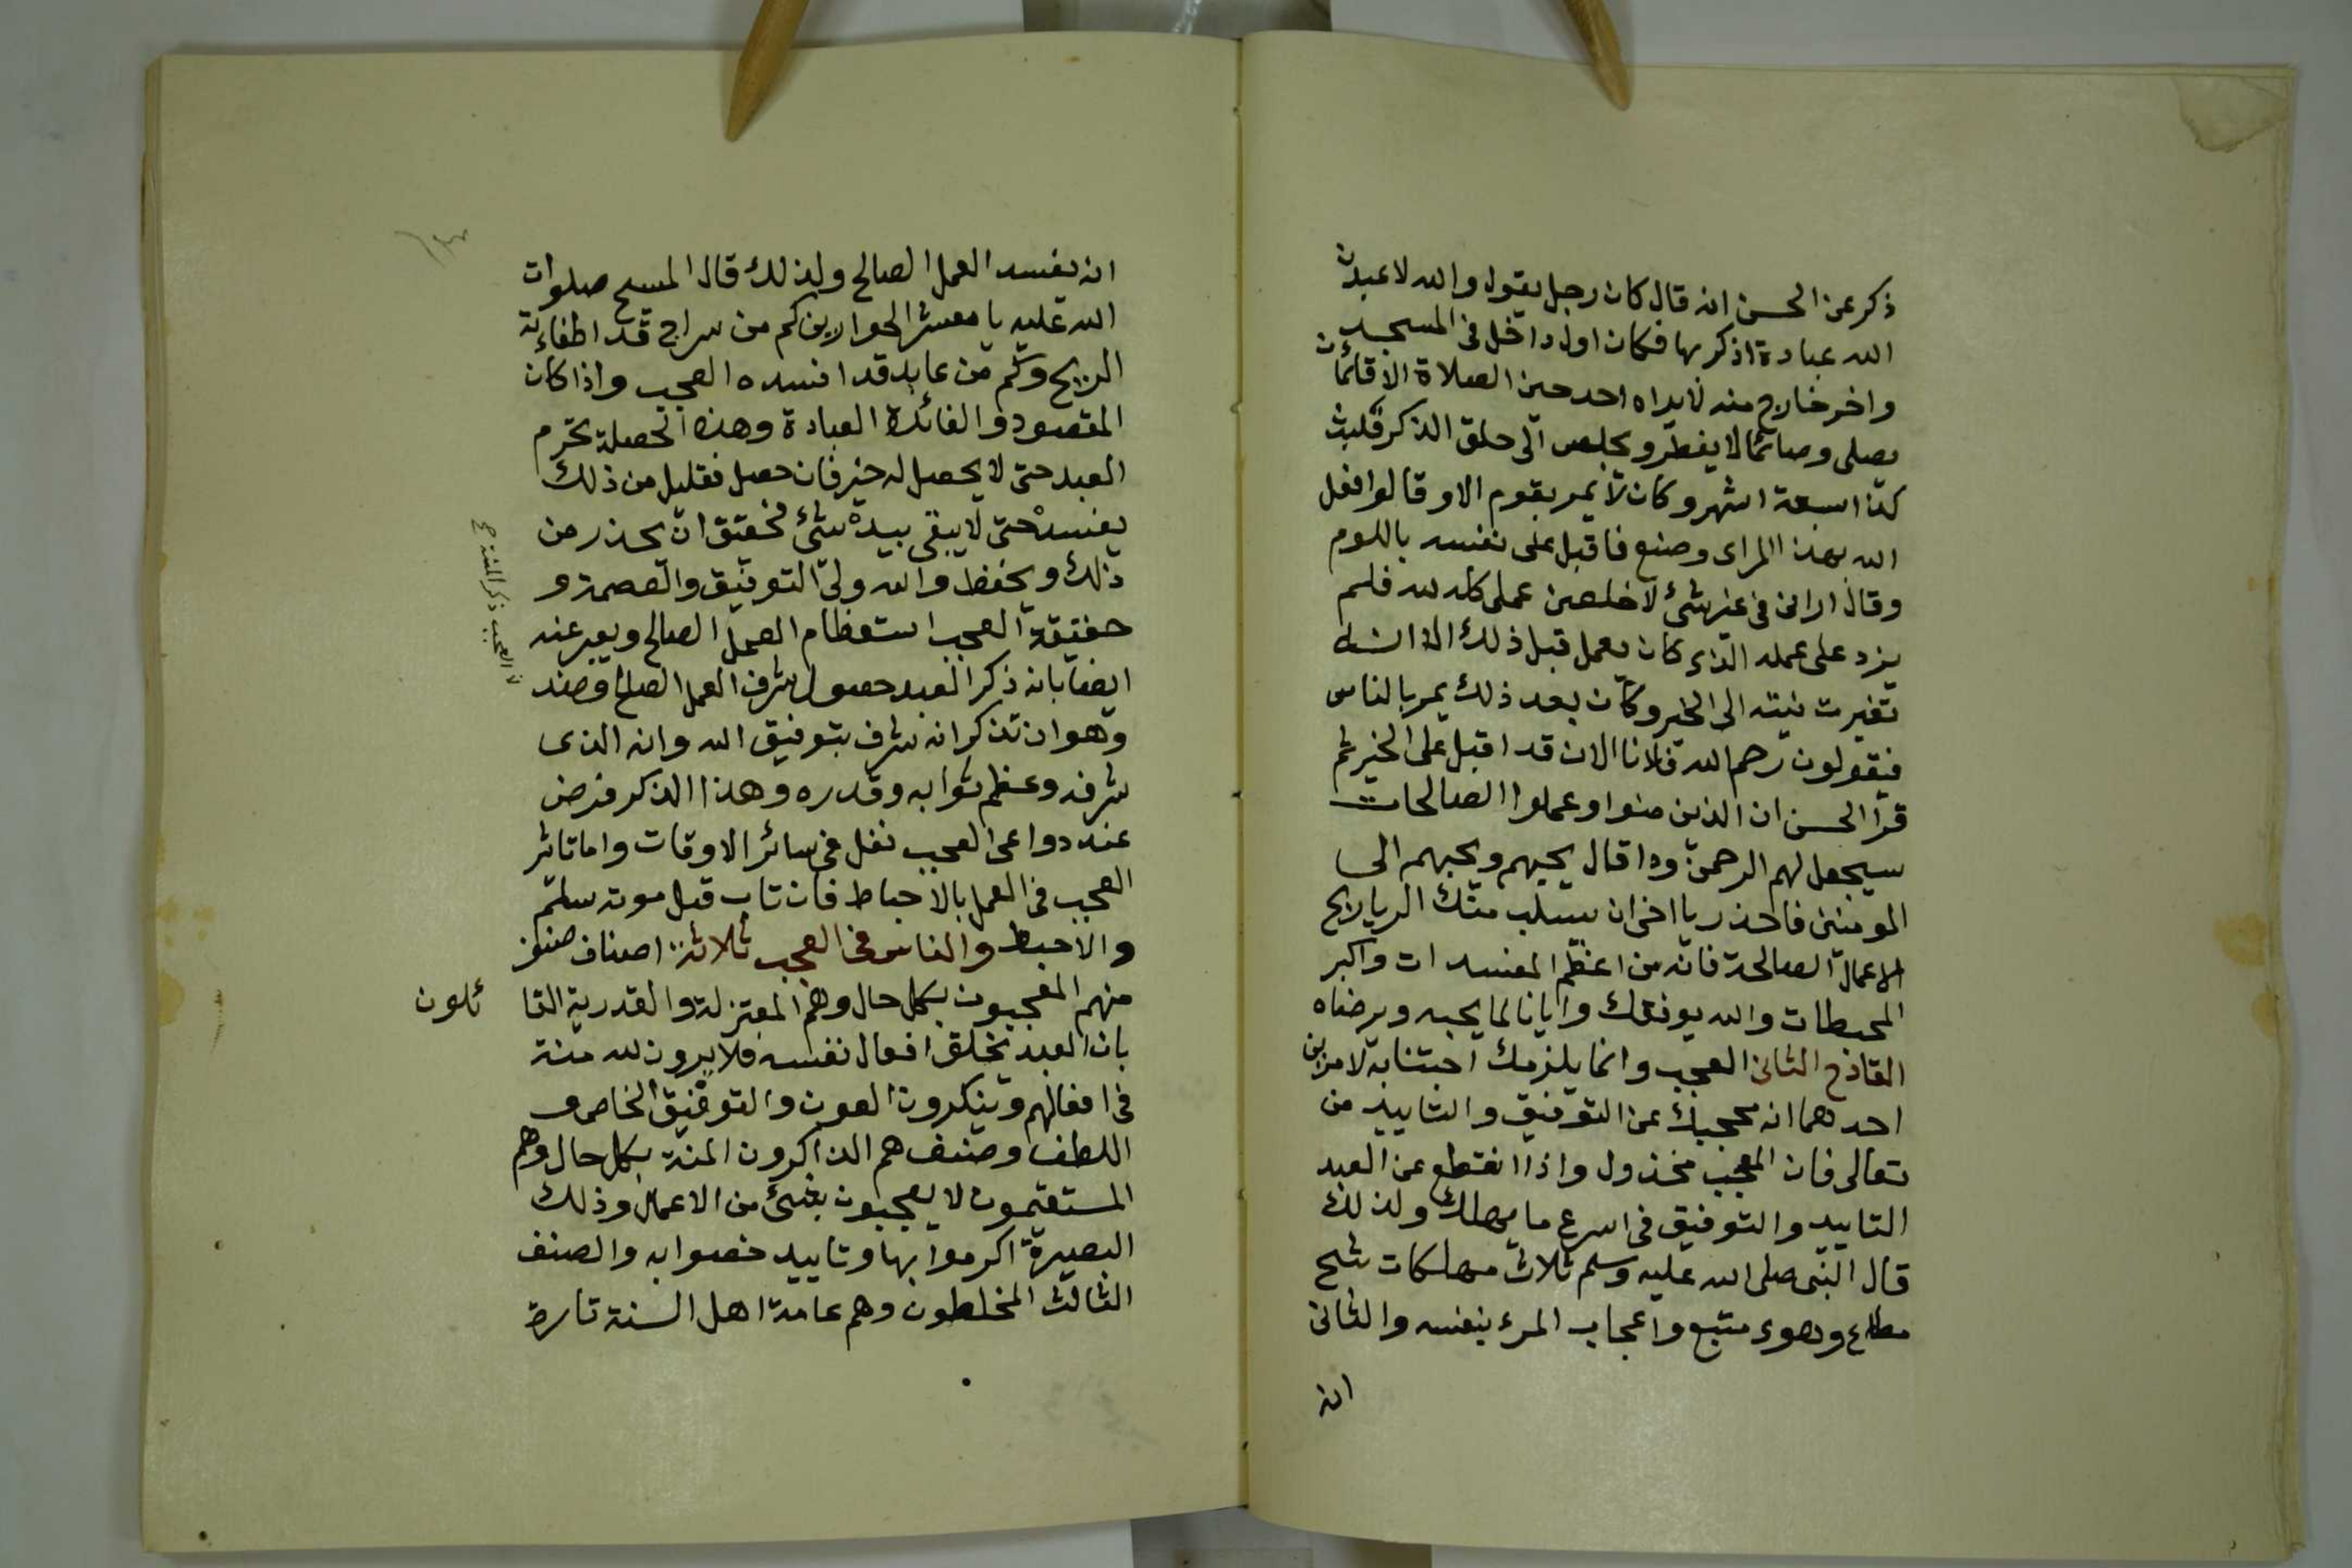 ذكر عن الحسن انه قال كان رجل يقول والله لاعبدن
الله عبادة اذكر بها فكان اول داخل في المسجد
واخر خارج منه لا يراه احد حين الصلاة الا قائما
يصلى وصائما لا يفطر ويجلس الى حلق الذكر فلبث
كذا سبعة اشهر وكان لا يمر بقوم الا وقالوا فعل
الله بهذا المراى وصنع فاقبل على نفسه باللوم
وقال ارانى فى غير شئ لاخلصن عملى كله لله فلم
يزد على عمله الذى كان يعمل قبل ذلك الا انه
تغيرت نيته الى الخير وكان بعد ذلك يمر بالناس
فيقولون رحم الله فلانا الان قد اقبل على الخير ثم
قرا الحسن ان الذين امنوا وعملوا الصالحات
سيجعل لهم الرحمن ودا قال يحبهم ويحببهم الى
المومنين فاحذر يا اخى ان يسلب منك الريا ربح
الاعمال الصالحة فانه من اعظم المفسدات واكبر
المحبطات والله يوفقك وايانا لما يحبه ويرضاه
القادح الثانى العجب وانما يلزمك اجتنابه لامرين
احدهما انه يحجبك عن التوفيق والتاييد من
تعالى فان المعجب مخذول واذا انقطع عن العبد
التاييد والتوفيق فى اسرع ما يهلك ولذلك
قال النبى صلى الله عليه وسلم ثلاث مهلكات شح
مطاع وهوى متبع واعجاب المرء بنفسه والثانى
انه
انه يفسد العمل الصالح ولذلك قال المسيح صلوات
الله عليه يا معشر الحواريين كم من سراج قد اطفاءته
الريح وكم من عابد قد افسده العجب واذا كان
المقصود والفائدة العبادة وهذه الخصلة تحرم
العبد حتى لا يحصل له خير فان حصل فقليل من ذلك
يفسده حتى لا يبقى بيده شئ فحقيق ان يحذر من
ذلك ويحفظ والله ولى التوفيق والعصمة و
حقيقة العجب استعظام العمل الصالح ويعبر عنه
ايضا بانه ذكر العبد حصول شرف العمل الصالح وضده
وهو ان تذكر انه شرف بتوفيق الله وانه الذى
شرفه وعظم ثوابه وقدره وهذا الذكر فرض
عند دواعى العجب نفل فى سائر الاوقات واما تاثر
العجب فى العمل بالاحباط فان تاب قبل موته سلم
والا حبط والناس فى العجب ثلاثة اصناف صنف
منهم المعجبون بكل حال وهم المعتزلة والقدرية القا ئلون
بان العبد يخلق افعال نفسه فلا يرون لله منة
فى افعالهم وينكرون العون والتوفيق الخاص و
اللطف وصنف هم الذاكرون المنة بكل حال وهم
المستقيمون لا يعجبون بشئ من الاعمال وذلك
البصيرة اكرموا بها وتاييد خصوا به والصنف
الثالث المخلطون وهم عامة اهل السنة تارة